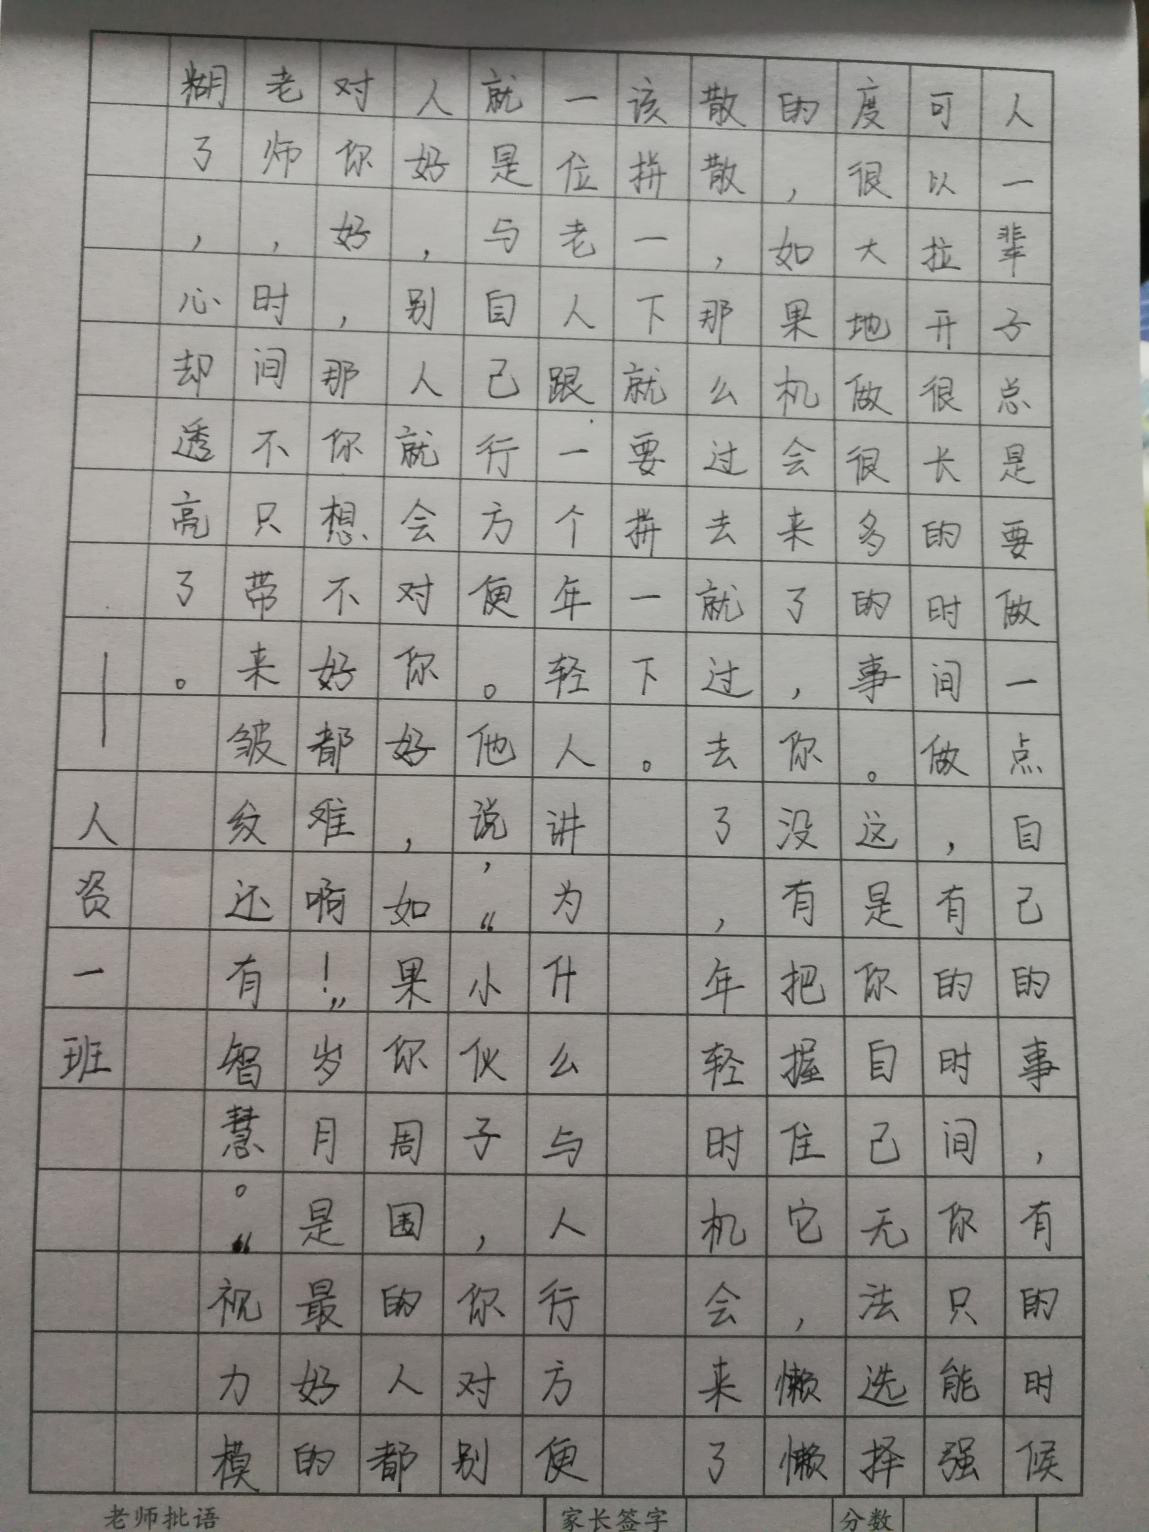 人一辈子总是要做一点自己的事，有的时候
可以拉开很长的时间做，有的时间你只能强
度很大地做很多的事。这是你自己无法选择
的，如果机会来了，你没有把握住它，懒懒
散散，那么过去就过去了，年轻时机会来了
该拼一下就要拼一下。
一位老人跟一个年轻人讲为什么与人行方便
就是与自己行方便。他说，“小伙子，你对别
人好，别人就会对你好，如果你周围的人都
对你好，那你想不好都难啊！”岁月是最好的
老师，时间不只带来皱纹还有智慧。“视力模
糊了，心却透亮了。
——人资一班
老师批语 家长签字 分数